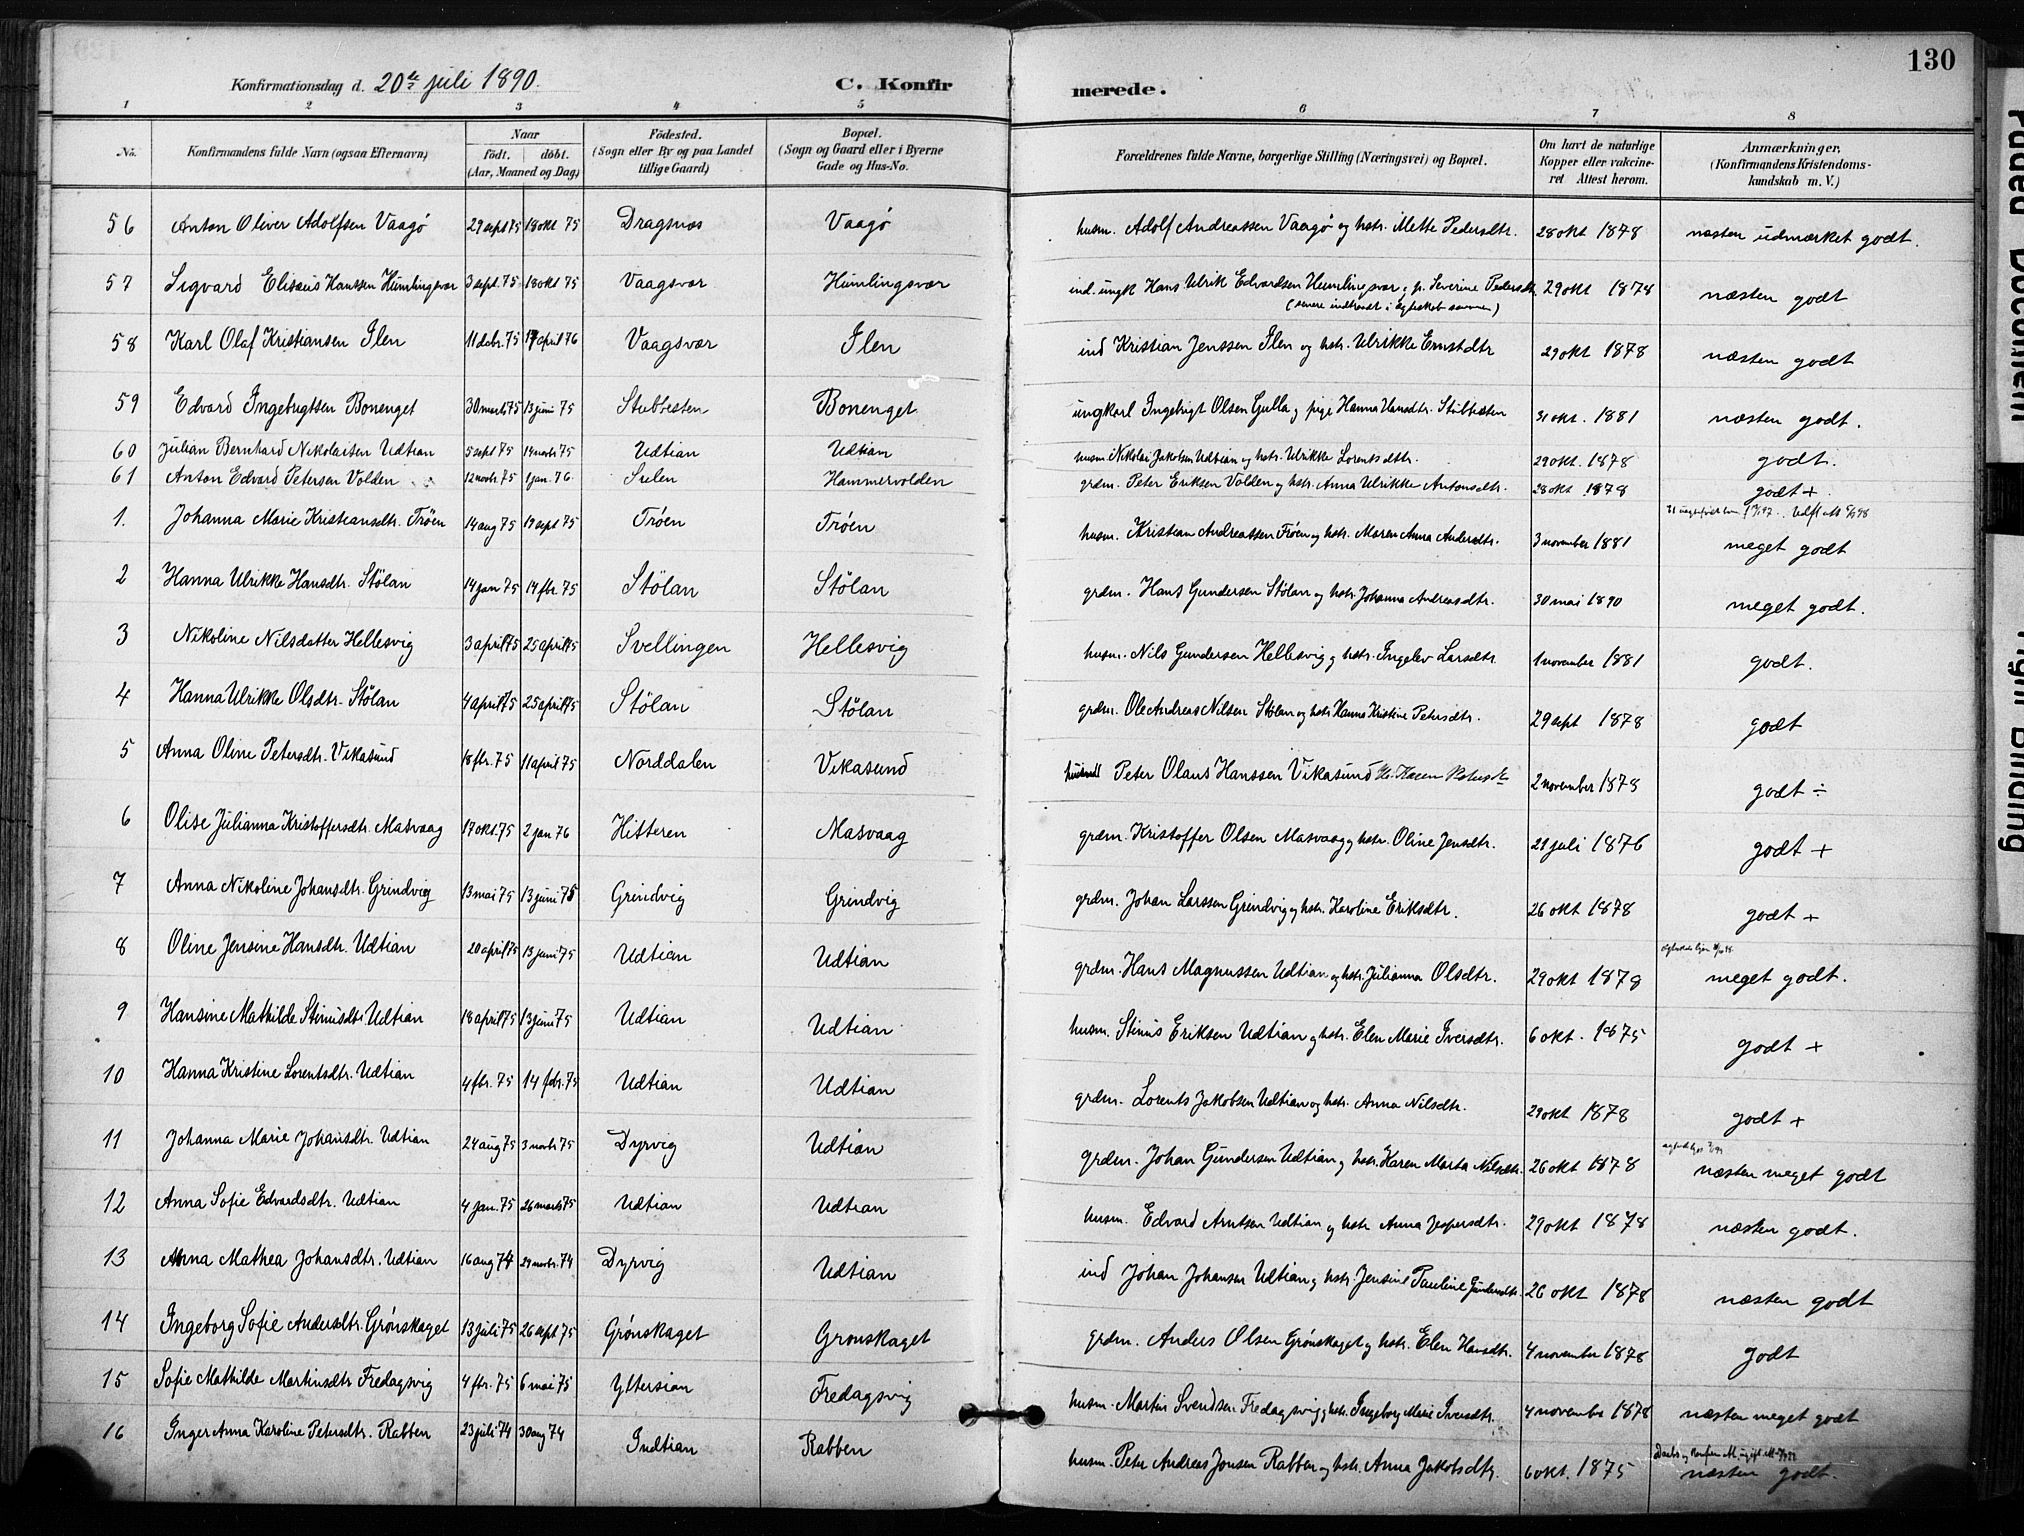 130
Konfirmationsdag d. 20de juli 1890.
C. Konfirmerede.
1 2 3 4 5 6 7 8
No. Konfirmandens fulde Navn (ogsaa Efternavn) Naar født. døbt. (Aar, Maaned og Dag) Födested. (Sogn eller By og paa Landet tillige Gaard) Bopæl. (Sogn og Gaard eller i Byerne Gade og Hus-No. Forældrenes fulde Navne, borgerlige Stilling (Næringsvei) og Bopæl. Om havt de naturlige Kopper eller vakcineret Attest herom. Anmærkninger, (Konfirmandens Kristendomskundskab m. V.)
56 Anton Oliver Adolfsen Vaagø 29 sept 75 18 okt 75 Dragsnæs Vaagø husm. Adolf Andreassen Vaagø og hstr. Mette Pedersdtr. 28 okt 1878 næsten udmærket godt.
57 Sigvard Elisæus Hanssen Humlingsvær 3 sept. 75 18 okt 75 Vaagsvær Humlingsvær ind. ungk Hans Ulrik Edvardsen Humlingsvær og p. Severine Pedersdtr. 29 okt 1878 næsten godt
58 Karl Olaf Kristiansen Ilen 11 debr. 75 17 april 76 Vaagsvær Ilen ind Kristian Jenssen Ilen og hstr. Ulrikke Ernstdtr 29 okt 1878 næsten godt
59 Edvard Ingebrigtsen Bonenget 30 marts 75 13 juni 75 Stubbesten Bonenget ungkarl Ingebrigt Olsen Gulla og pige Hanna Hansdtr. 31 okt. 1881 næsten godt.
60 Julian Bernhard Nikolaisen Udtian 5 sept 75 14 novbr 75 Udtian Udtian husm. Nikolai Jakobsen Udtian og hstr. Ulrikke Lorentsdtr. 29 okt. 1878 godt.
61 Anton Edvard Petersen Volden 12 novbr. 75 1 jan. 76. Sulen Hammervolden grdm. Peter Eriksen Volden og hstr. Anna Ulrikke Antonsdtr. 28 okt 1878 godt +
1. Johanna Marie Kristiansdtr. Trøen 14 aug 75 19 sept 75 Trøen Trøen husm. Kristian Andreassen Trøen og hstr. Maren Anna Andersdtr. 3 november 1881 meget godt
2 Hanna Ulrikke Hansdtr. Stölan 14 jan 75 14 fbr. 75 Stölan Stölan grdm. Hans Gundersen Stölan og hstr. Johanna Andreasdtr. 30 mai 1890 meget godt.
3 Nikoline Nilsdatter Hellesvig 3 april 75 25 april 75 Svellingen Hellesvig husm. Nils Gundersen Hellesvig og hstr. Ingelev Larsdtr 1 november 1881 godt.
4 Hanna Ulrikke Olsdtr. Stölan 4 april 75 25 april 75 Stölan Stölan grdm. Ole Andreas Nilsen Stölan og hstr Hanna Kristine Petersdtr. 29 sept 1878 godt
5 Anna Oline Petersdtr. Vikasund 18 fbr. 75 11 april 75 Norddalen Vikasund Peter Olaus Hanssen Vikasund 2 november 1878 godt ÷
6 Olise Julianna Kristoffersdtr. Masvaag 17 okt. 75 2 jan 76 Hitteren Masvaag grdm. Kristoffer Olsen Masvaag og hstr. Oline Jensdtr. 21 juli 1876 godt +
7 Anna Nikoline Johansdtr. Grindvig 13 mai 75 13 juni 75 Grindvig Grindvig grdm. Johan Larssen Grindvig og hstr. Karoline Eriksdtr. 26 okt 1878 godt +
8 Oline Jensine Hansdtr. Udtian 20 april 75 13 juni 75 Udtian Udtian grdm. Hans Magnussen Udtian og hstr. Julianna Olsdtr. 29 okt 1878 meget godt.
9 Hansine Mathilde Stinusdtr Udtian 18 april 75 13 juni 75 Udtian Udtian husm. Stinus Eriksen Udtian og hstr. Elen Marie Iversdtr. 6 okt. 1875 godt +
10 Hanna Kristine Lorentsdtr. Udtian 4 fbr. 75 14 febr. 75 Udtian Udtian grdm. Lorents Jakobsen Udtian og hstr. Anna Nilsdtr. 29 okt 1878 godt +
11 Johanna Marie Johansdtr. Udtian 24 aug 75 3 novbr 75 Dyrvig Udtian grdm. Johan Gundersen Udtian og hstr. Karen Marta Nilsdtr. 26 okt 1878 næsten meget godt
12 Anna Sofie Edvardsdtr. Udtian 4 jan. 75 26 marts 75 Udtian Udtian husm. Edvard Arntsen Udtian og hstr Anna Jespersdtr. 29 okt 1878 næsten godt.
13 Anna Mathea Johansdtr. Udtian 16 aug 74 29 novbr. 74 Dyrvig Udtian ind Johan Johansen Udtian og hstr. Jensine Pauline Gundersdtr. 26 okt 1878 næsten godt
14 Ingeborg Sofie Andersdtr. Grønskaget 13 juli 75 26 sept 75 Grønskaget Grønskaget grdm. Anders Olsen Grønskaget og hstr. Elen Hansdtr. 4 november 1878 godt
15 Sofie Mathilde Martinsdtr Fredagsvig 4 fbr. 75 6 mai 75 Yttersian Fredagsvig husm. Martin Svendsen Fredagsvig og hstr. Ingeborg Marie Iversdtr. 4 november 1878 næsten meget godt
16 Inger Anna Karoline Petersdtr. Rabben 23 juli 74 30 aug 74 Indtian Rabben husm. Peter Andreas Jonsen Rabben og hstr. Anna Jakobsdtr. 6 okt. 1875 næsten godt.